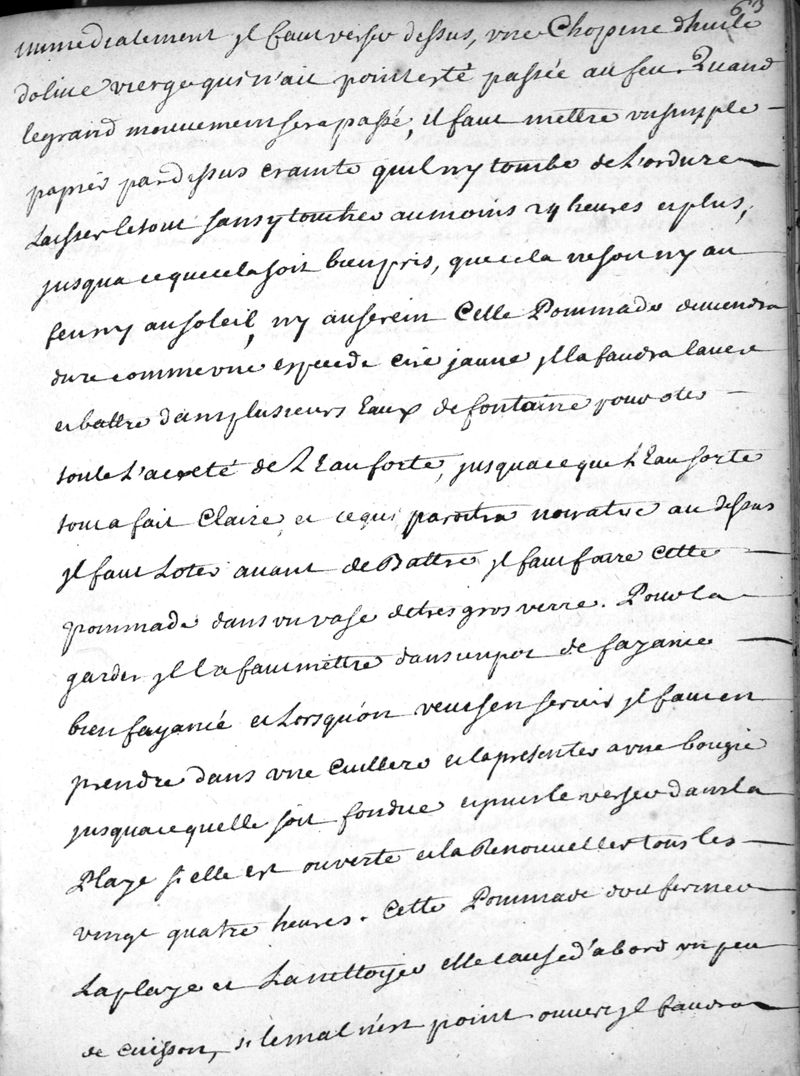 63
immediatement jl faut verser dessus, vne Chopine dhuile
dolive vierge qui n'ait point esté passée au feu. Quand
le grand mouvement sera passé, il faut mettre vn simple
papier par dessus crainte quil ny tombe de L'ordure
Laisser le tout sans y toucher au moins 24 heures et plus,
jusqua ce que cela soit bien pris, que cela ne soit ny au
feu ny au soleil, ny au serein Cette Pommade deviendra
dure comme vne espece de cire jaune jl la faudra laver
et battre dans plusieurs Eaux de fontaine pour oter
toute L'acreté de L'Eau forte, jusqua ce que L'Eau sorte
tout a fait Claire, et ce qui paroitra noiratre au dessus
jl faut Loter auant de Battre jl faut faire Cette
pommade dans vn vase de tres gros verre. Pour la
garder jl la faut mettre dans un pot de fayance
bien fayancé et Lorsqu'on veut sen servir jl faut en
prendre dans vne Cuillere et la presenter a vne bougie
jusqua ce quelle soit fondue et puis le verser dans la
Playe si elle est ouverte et la Renouveller tous les
vingt quatre heures. Cette Pommade doit fermer
La playe et La nettoyer elle cause d'abord vn peu
de cuisson, si le mal n'est point ouvert jl faudra